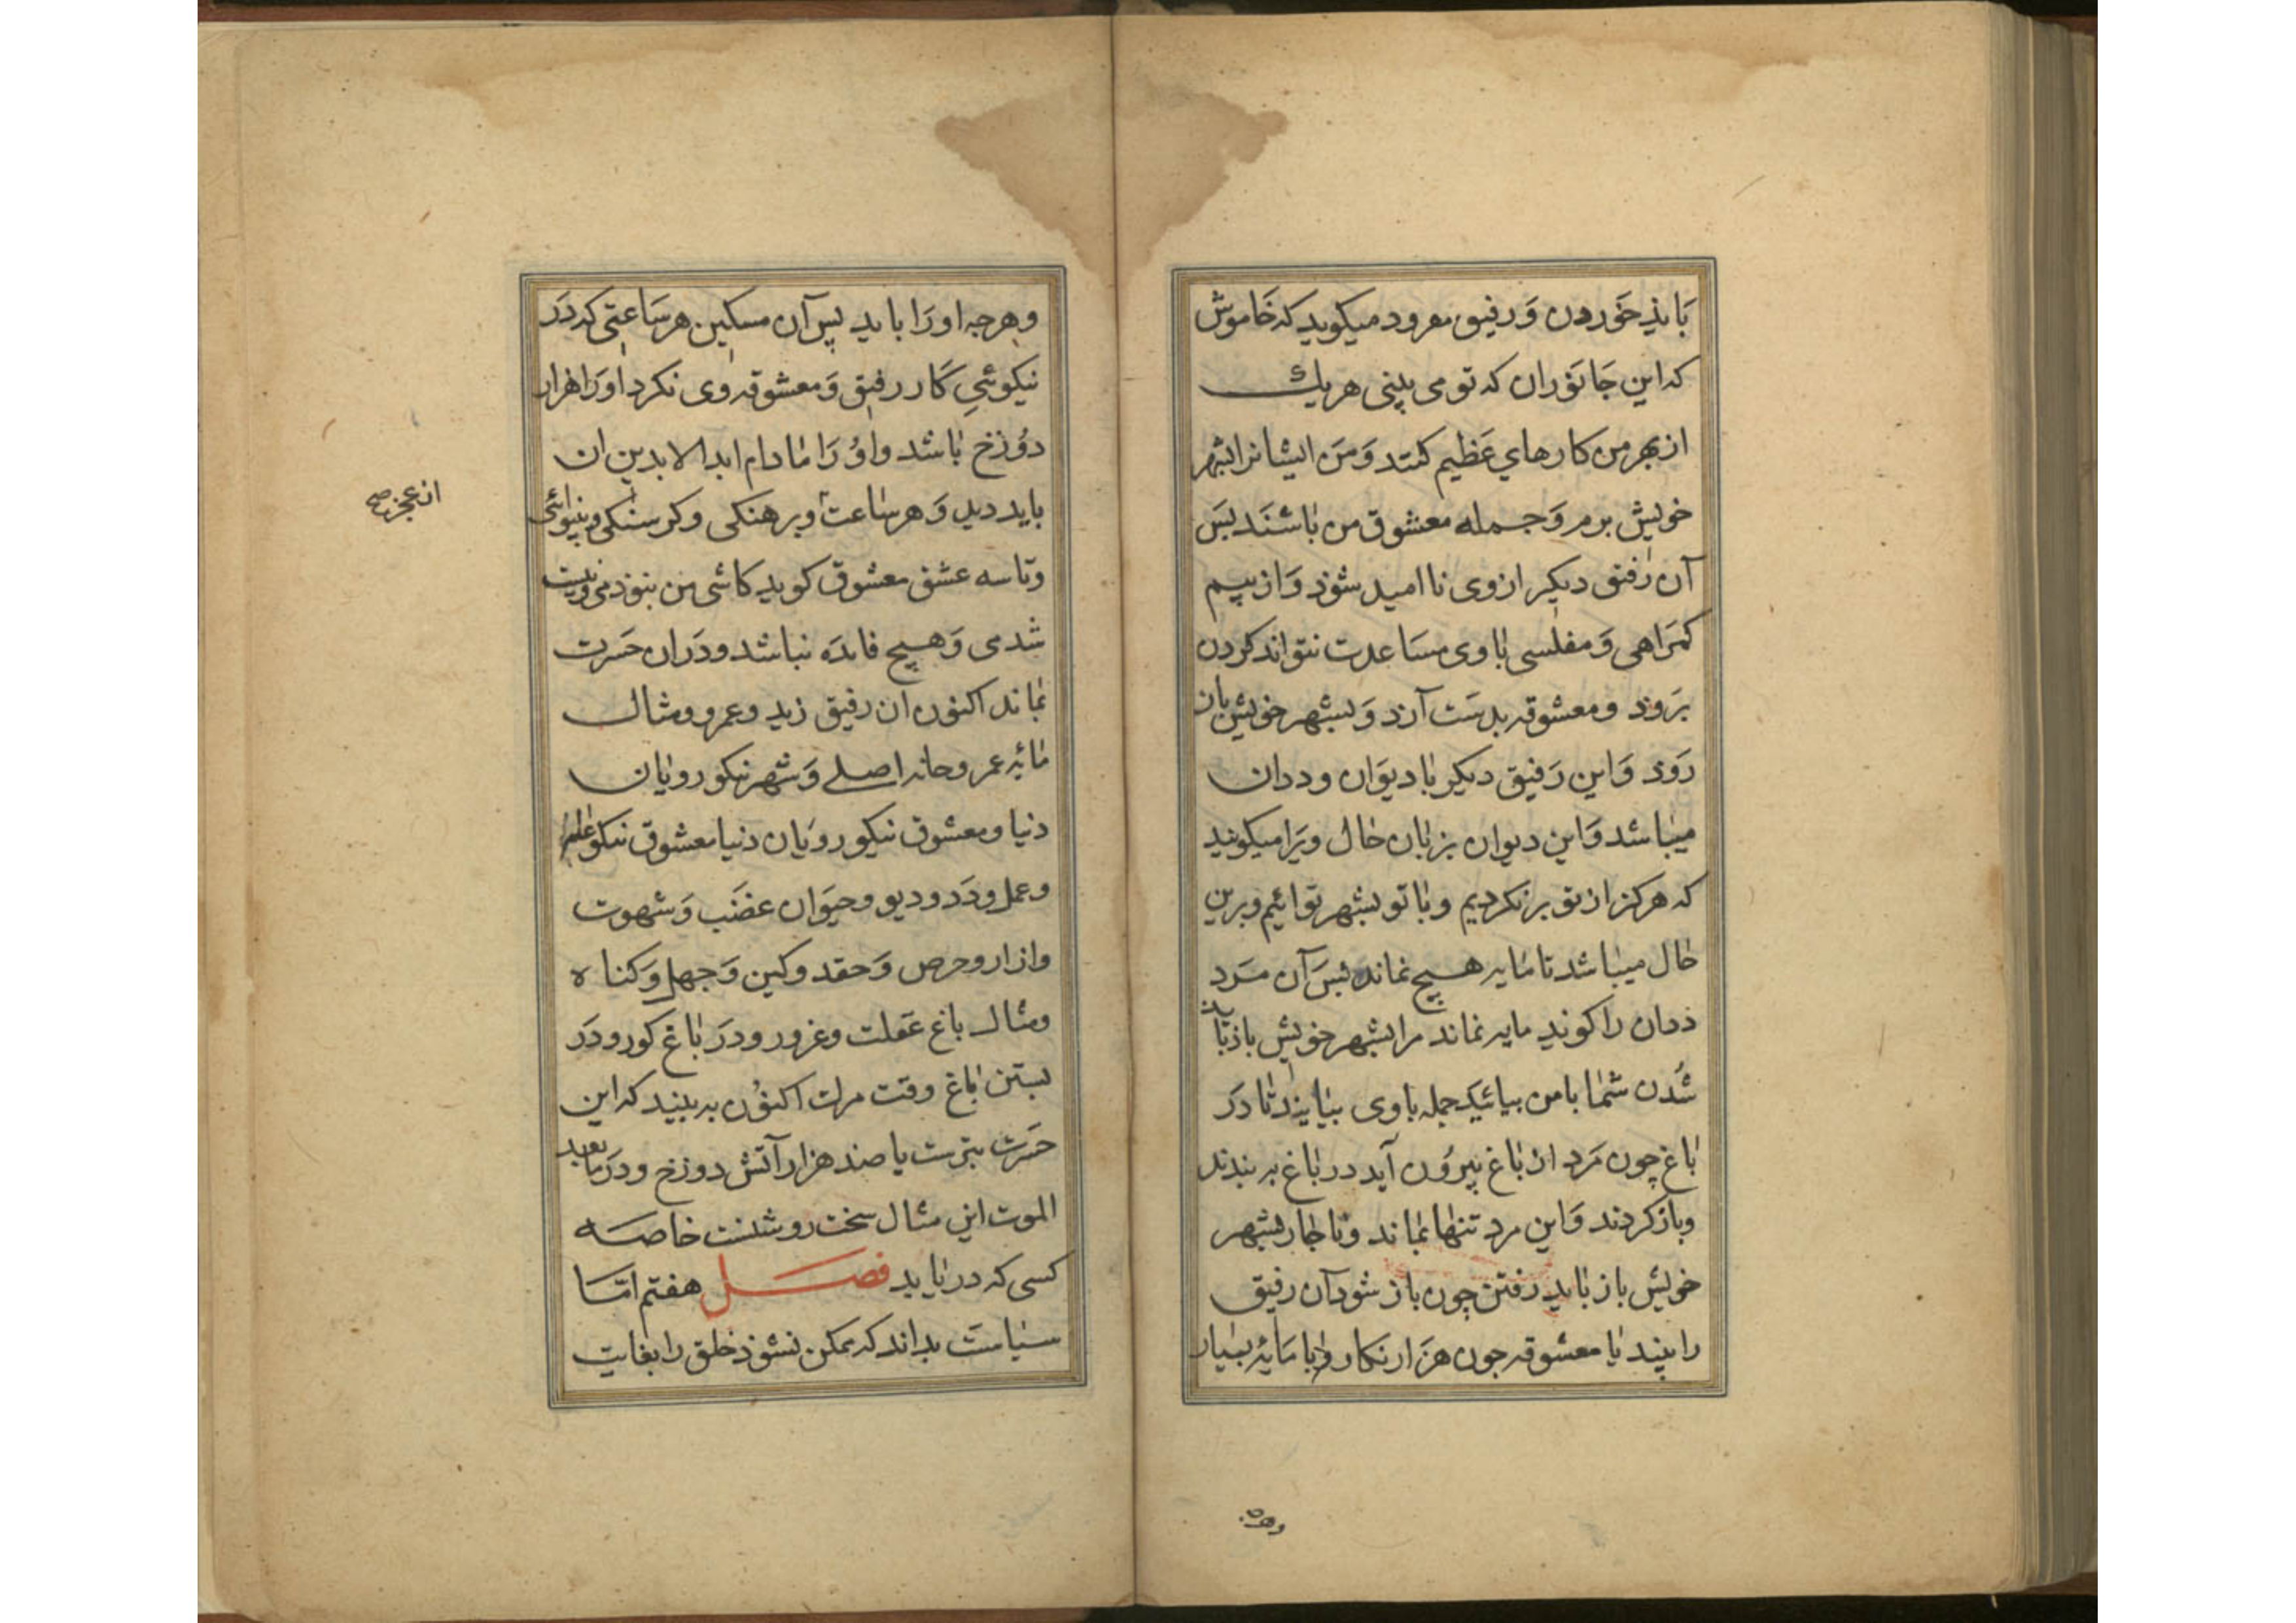 باید خوردن و رفیق مغرود میکوید که خاموش
که این جانوران که تو می بینی هر یک
از بهر من کارهای عظیم کنند و من ایشانرا بشهر
خویش برم و جمله معشوق من باشند بس
آن رفیق دیکر از وی نا امید شوذ و از بیم
کمراهی و مفلسی با وی مساعدت نتواند کردن
بروذ و معشوقه بدست آرذ و بشهر خویش باز
روذ و این رفیق دیکر با دیوان و ددان
میباشد و این دیوان بزبان حال ویرا میکویند
که هرکز از تو برنکردیم و با تو بشهر تو ائیم و برین
حال میباشد تا مایه هیچ نماند بس آن مرد
ددان را کوید مایه نماند مرا بشهر خویش باز باید
شدن شما با من بیائید جمله باوی بیایند تا در
باغ چون مرد از باغ بیرون آید در باغ به بندند
و باز کردند و این مرد تنها بماند و ناجار بشهر
خویش باز باید رفتن چون باز شود آن رفیق
را بیند با معشوقه جون هزار نکار و با مایۀ بسیار
وهرجه
وهرجه او را باید پس آن مسکین هر ساعتی که در
نیکوئی کار رفیق و معشوقه وی نکرد او را هزار
دوزخ باشد و او را مادام ابد الابدین ان
باید دید و هر ساعت و برهنکی و کرسنکی و بینوائی
وتاسه عشق معشوق کوید کاشی من نبوذمی و نیست
شدمی و هیچ فایده نباشد و دران حسرت
بماند اکنون آن رفیق زید و عمرو و مثال
مایۀ عمر و خانه اصلی و شهر نیکو رویان
دنیا و معشوق نیکو رویان دنیا معشوق نیکو علم
وعمل و دد و دیو و حیوان غضب و شهوت
وازار و حرص و حقد و کین و جهل و کناه
ومثال باغ غفلت و غرور و در باغ کور و در
بستن باغ وقت مرک اکنون به بیند که این
حسرت بترست یا صد هزار آتش دوزخ و در مابعد
الموت این مثال سخت روشنست خاصه
کسی که دریابد فصل هفتم امّا
سیاست بداند که ممکن نشوذ خلق را بغایت
از عجز صح